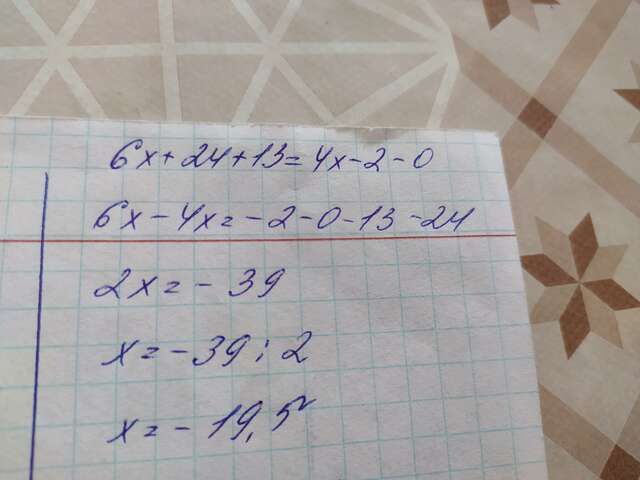 6x+24+13=4x-2-0
6x-4x=-2-0-13-24
2x=-39
x=-39:2
x=-19,5